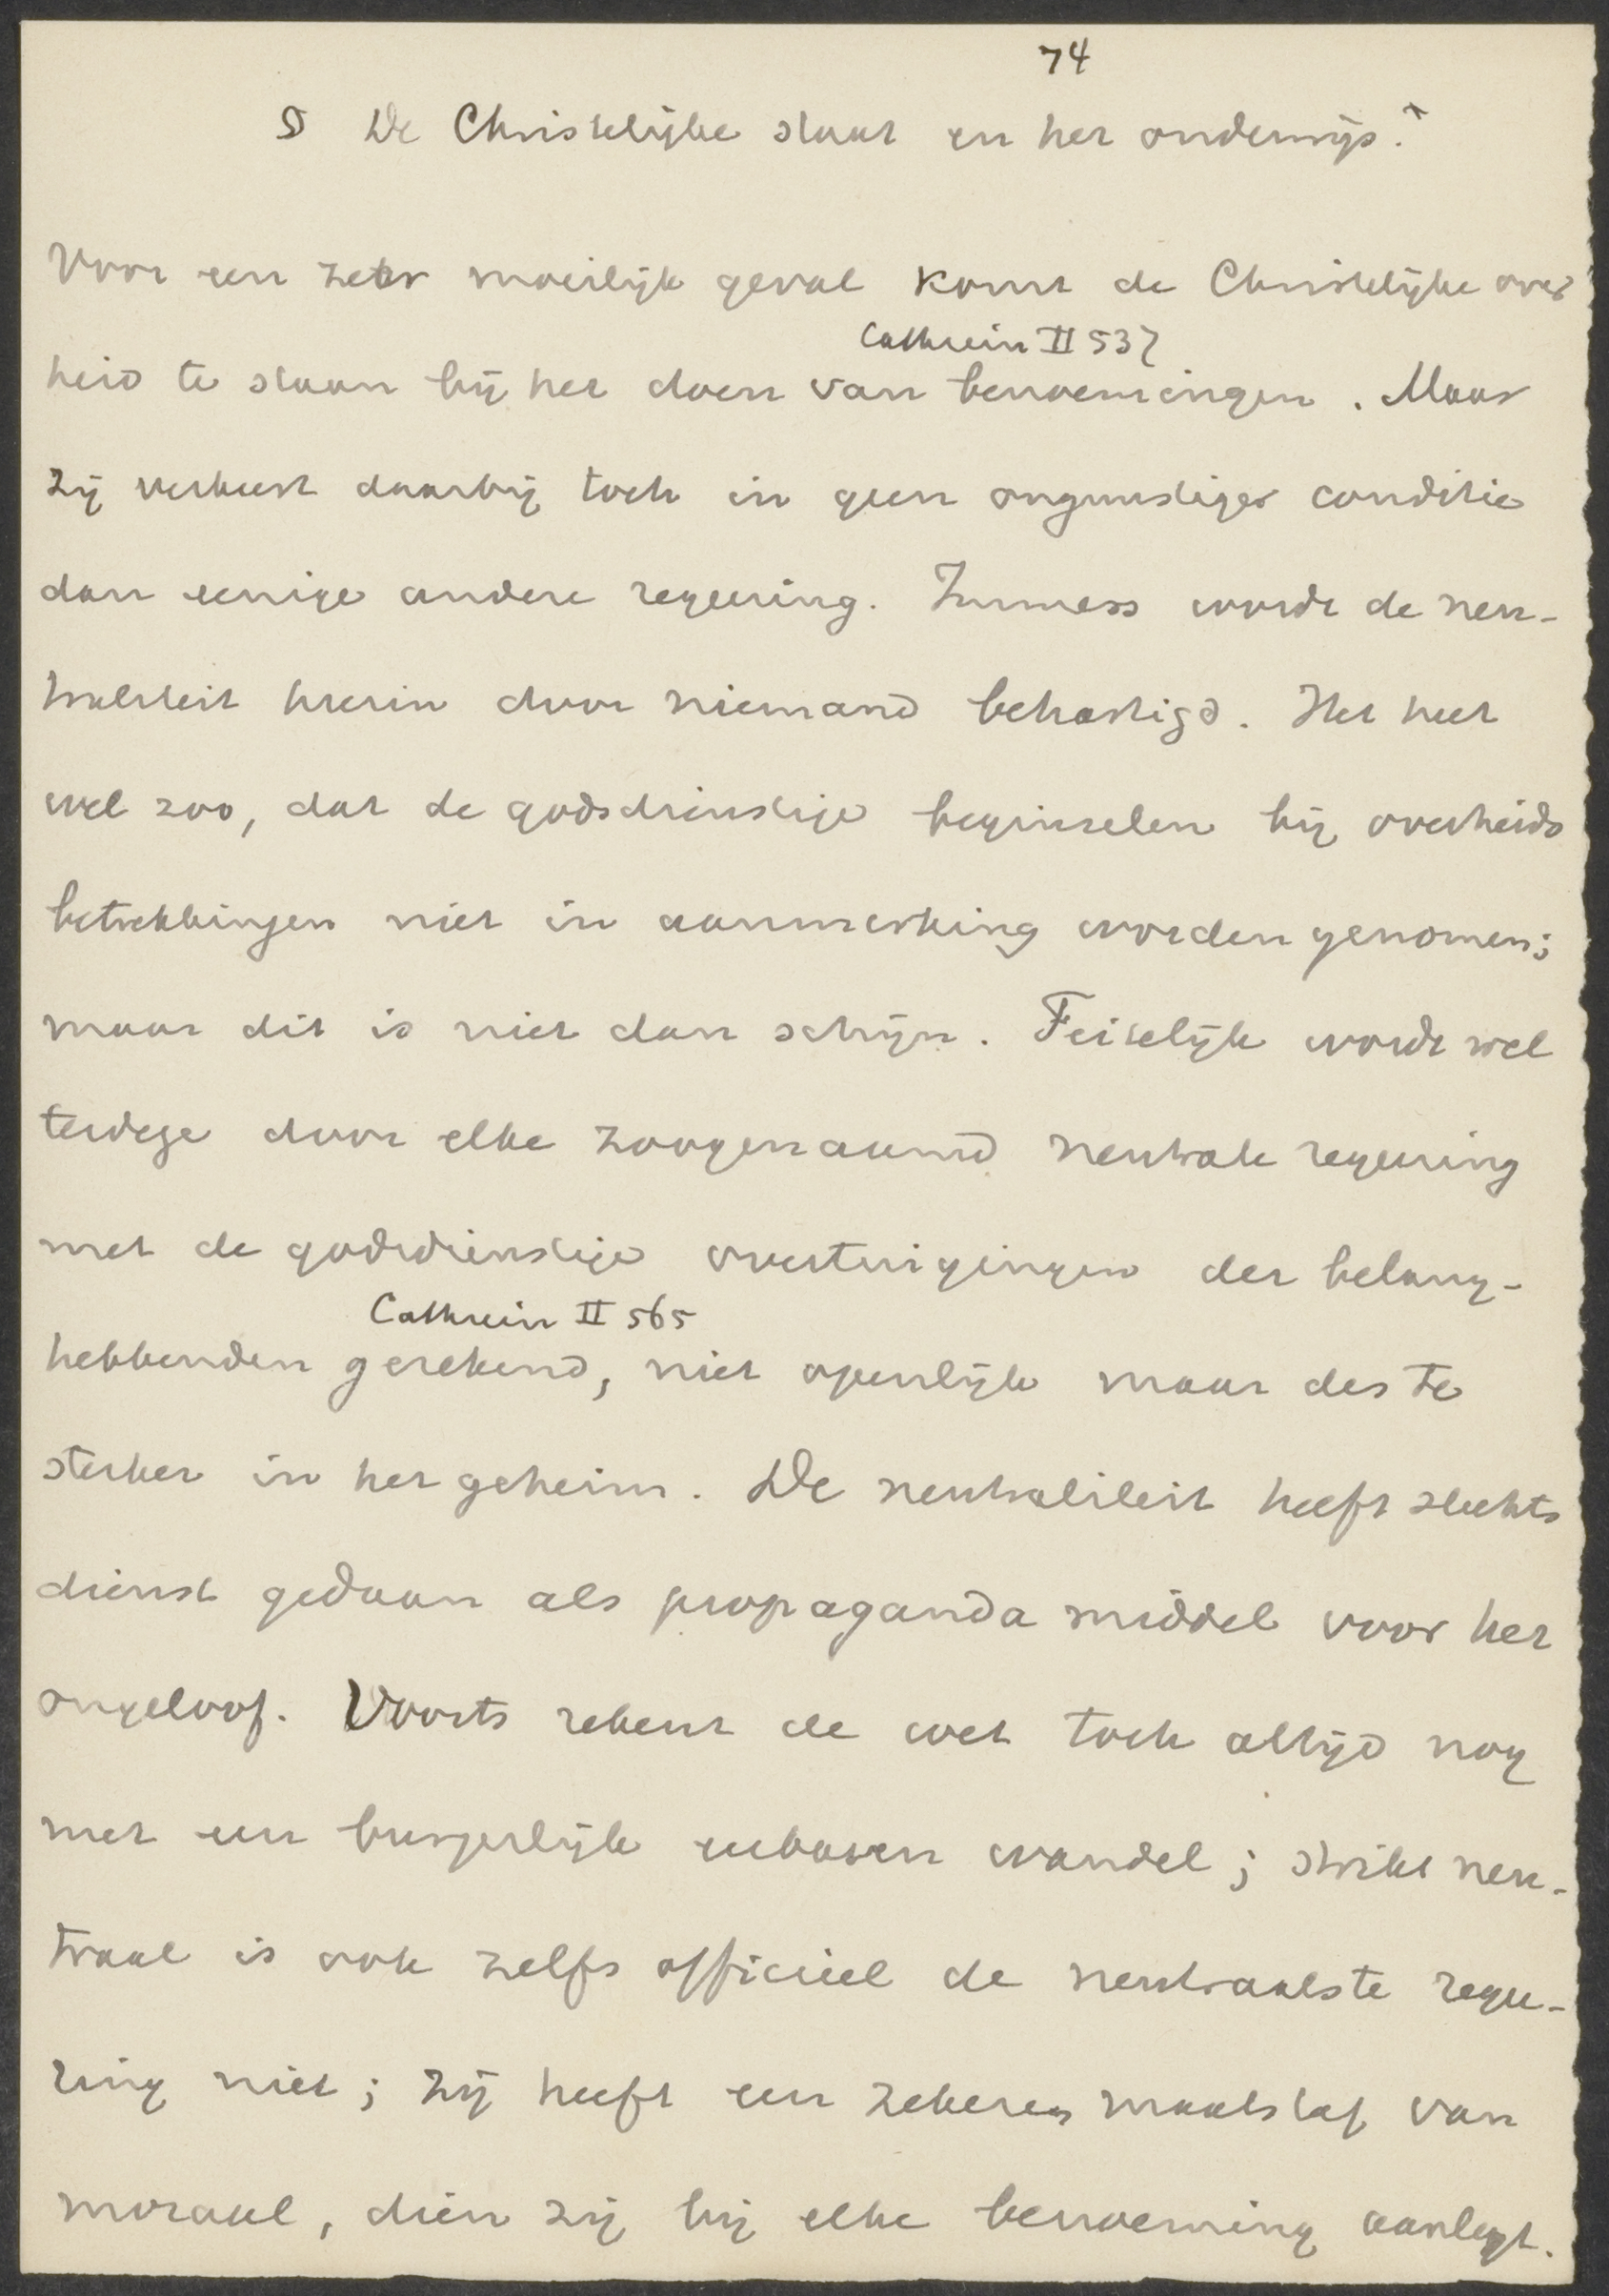 74
§ De Christelijke staat en het onderwijs."
Voor een zeer moeilijk geval komt de Christelijke over
Cathrein II 537
heid te staan bij het doen van benoemingen. Maar
zij verkeert daarbij toch in geen ongunstiger conditie
dan eenige andere regeering. Immers wordt de neu-
traliteit hierin door niemand behartigd. Het heet
wel zoo, dat de godsdienstige beginselen bij overheids
betrekkingen niet in aanmerking worden genomen;
maar dit is niet dan schijn. Feitelijk wordt wel
terdege door elke zoogenaamd neutrale regeering
met de godsdienstige overtuigingen der belang-
Cathrein II 565
hebbenden gerekend, niet openlijk maar des te
sterker in het geheim. De neutraliteit heeft slechts
dienst gedaan als propaganda middel voor het
ongeloof. Voorts rekent de wet toch altijd nog
met een burgerlijk eerbaren wandel; strikt neu-
traal is ook zelfs officieel de neutraalste regee-
ring niet; zij heeft een zekeren maatstaf van
moraal, dien zij bij elke benoeming aanlegt.